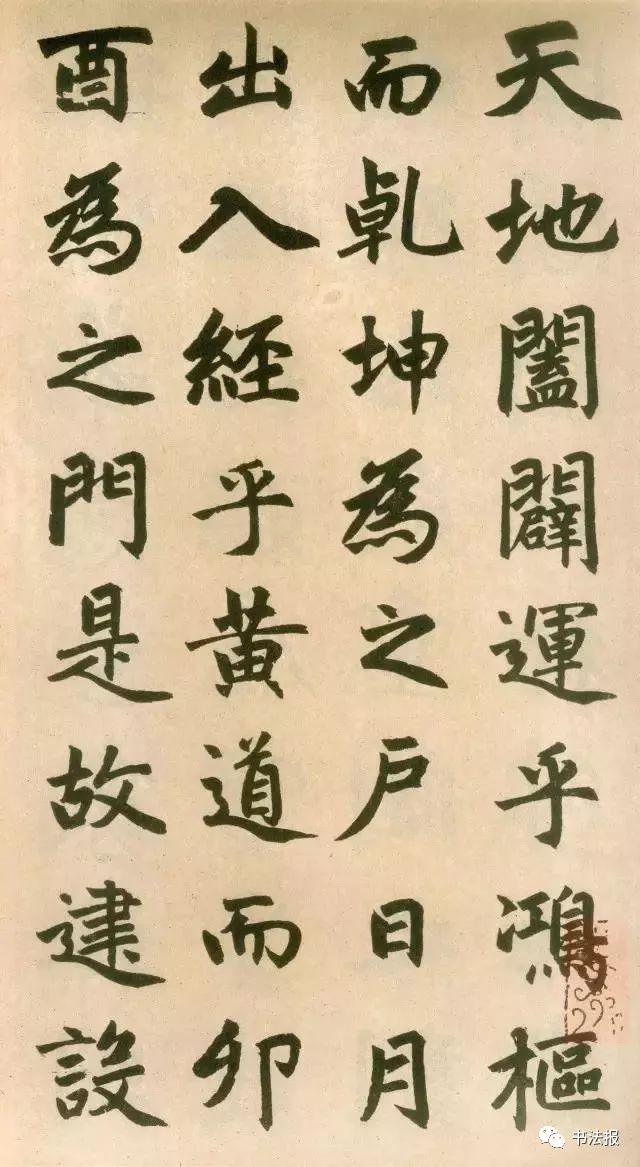 天地闔闢運乎鴻樞
而乹坤為之戶日月
出入經乎黄道而卯
酉為之門是故建設
书法报